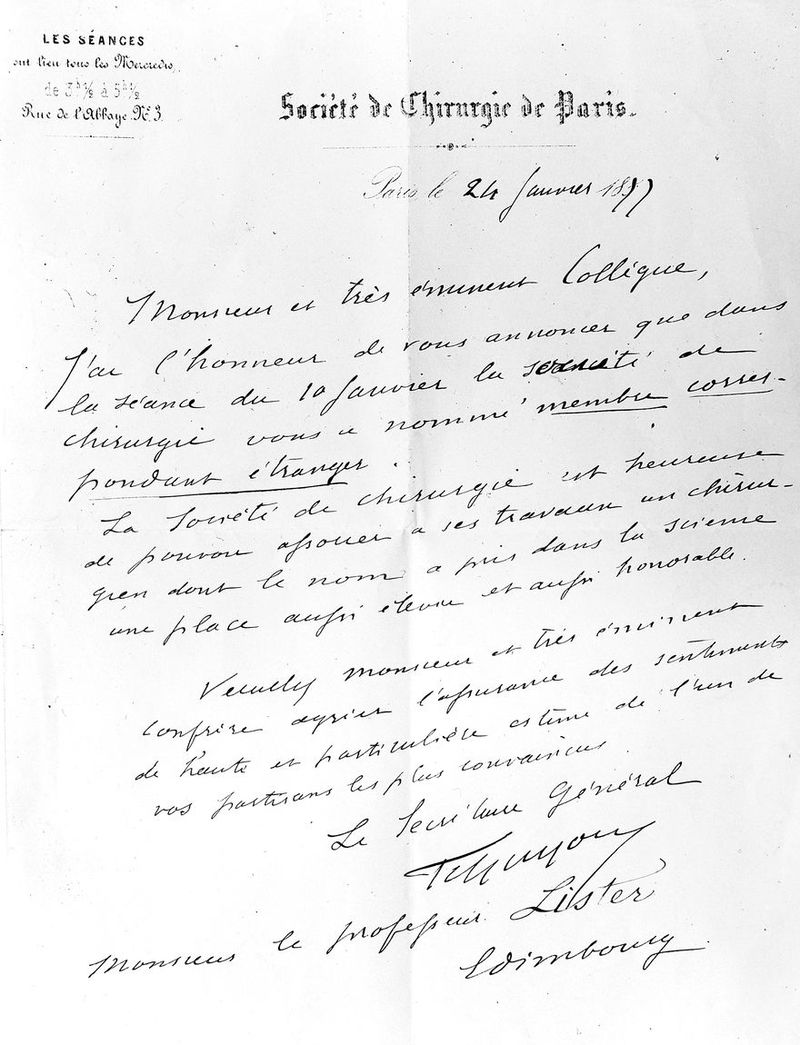 LES SÉANCES
ont lieu tous les Mercredis,
de 3h½ à 5h½
Rue de l'Abbaye, Nº 3.
Société de Chirurgie de Paris.
Paris le 24 Janvier 1877
Monsieur et très éminent Collègue,
J'ai l'honneur de vous annoncer que dans
la séance du 10 Janvier la société de
chirurgie vous a nommé membre corres-
pondant étranger.
La Société de chirurgie est heureuse
de pouvoir associer à ses travaux un chirur-
gien dont le nom a pris dans la science
une place aussi élevée et aussi honorable.
Veuillez monsieur et très éminent
confrère agréer l'assurance des sentiments
de haute et particulière estime de l'un de
vos partisans les plus convaincus.
Le Secrétaire Général
Monsieur le professeur Lister
Edimbourg